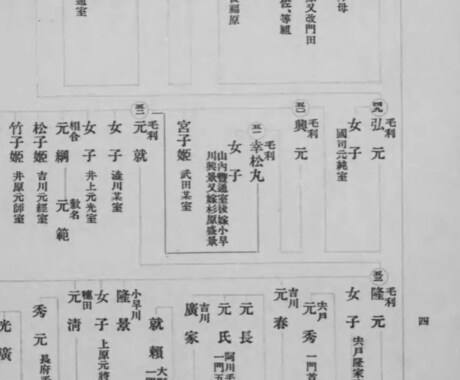 母
又改門田
佐、等祖
後福原
通室
毛利
弘元
女子
國司元純室
毛利
興元
毛利
幸松丸
女子
山内豐通室後嫁小早
川興景又嫁杉原盛景
宮子姫 武田某室
毛利
元就
女子 澁川某室
女子 井上元光室
相合 敷名
元綱 元範
松子姫 吉川元經室
竹子姫 井原元師室
毛利
隆元
女子 宍戸隆家
宍戸
元秀 一門首
吉川
元春
元長
元氏 阿川毛
一門五
吉川
廣家
就賴 大野
小早川
隆景
女子 上原元將
穗田
元清
秀元 長府毛
光廣
四